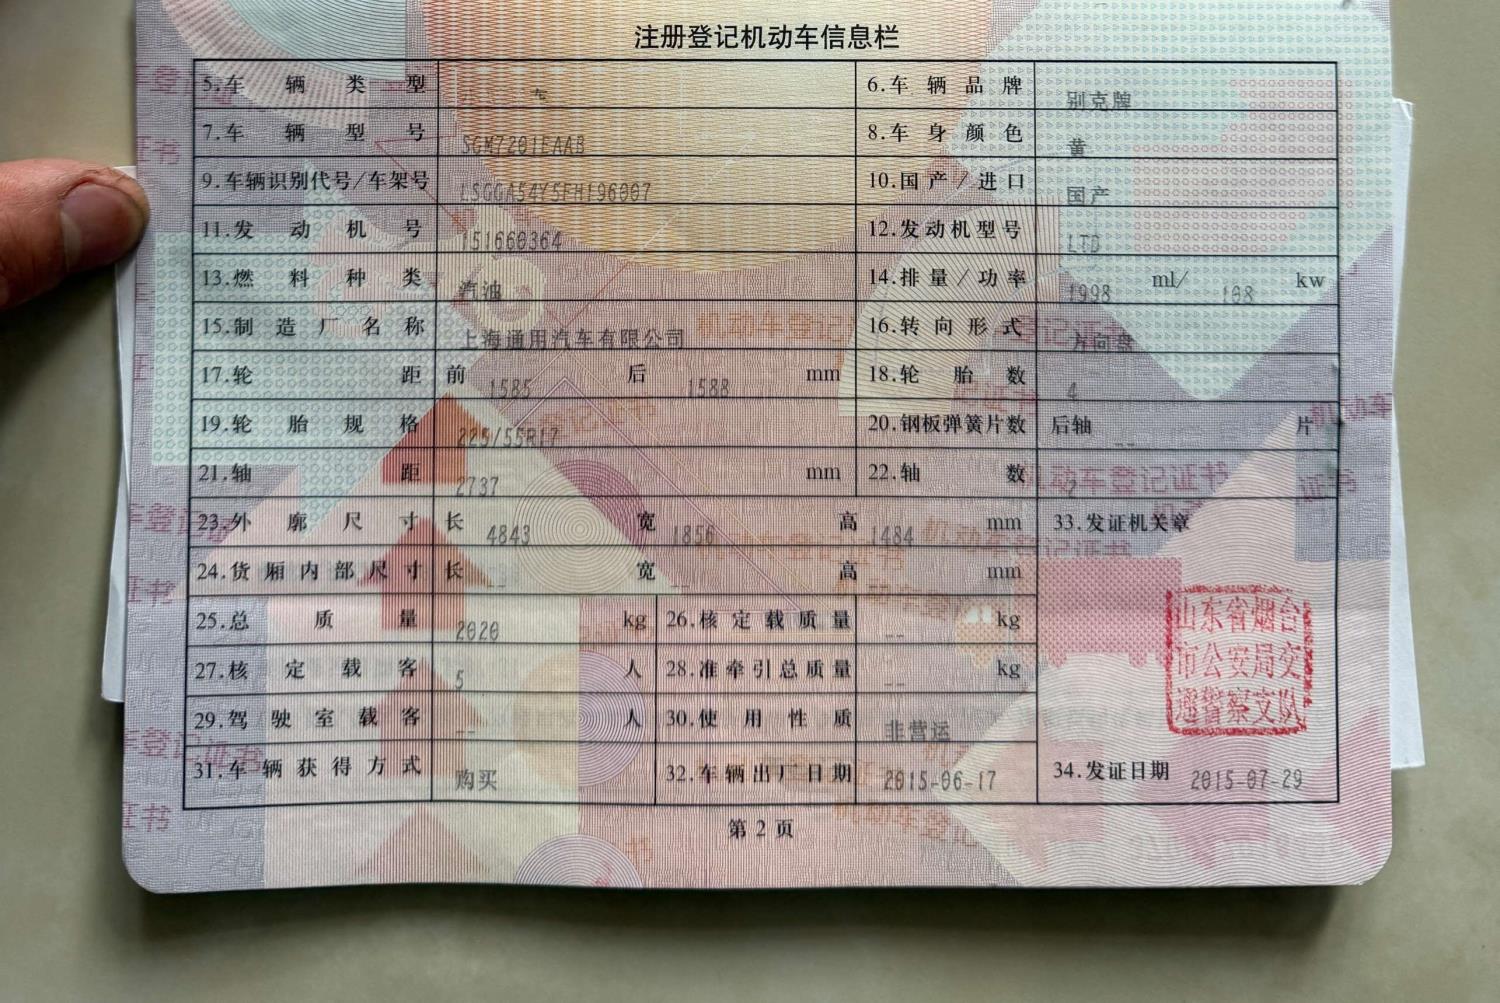 注册登记机动车信息栏
5.车辆类型 车 6.车辆品牌 别克牌
7.车辆型号 SGM7201EAAB 8.车身颜色 黄
9.车辆识别代号/车架号 LSGGA54Y5FH196007 10.国产/进口 国产
11.发动机号 151660364 12.发动机型号 LTD
13.燃料种类 汽油 14.排量/功率 1998 ml/ 108 kw
15.制造厂名称 上海通用汽车有限公司 16.转向形式 方向盘
17.轮距 前 1585 后 1588 mm 18.轮胎数 4
19.轮胎规格 225/55R17 20.钢板弹簧片数 后轴 -- 片
21.轴距 2737 mm 22.轴数 2
23.外廓尺寸 长 4843 宽 1856 高 1484 mm 33.发证机关章
24.货厢内部尺寸 长 -- 宽 -- 高 -- mm
25.总质量 2020 kg 26.核定载质量 -- kg
27.核定载客 5 人 28.准牵引总质量 -- kg
29.驾驶室载客 -- 人 30.使用性质 非营运
31.车辆获得方式 购买 32.车辆出厂日期 2015-06-17 34.发证日期 2015-07-29
山东省烟台
市公安局交
通警察支队
第2页